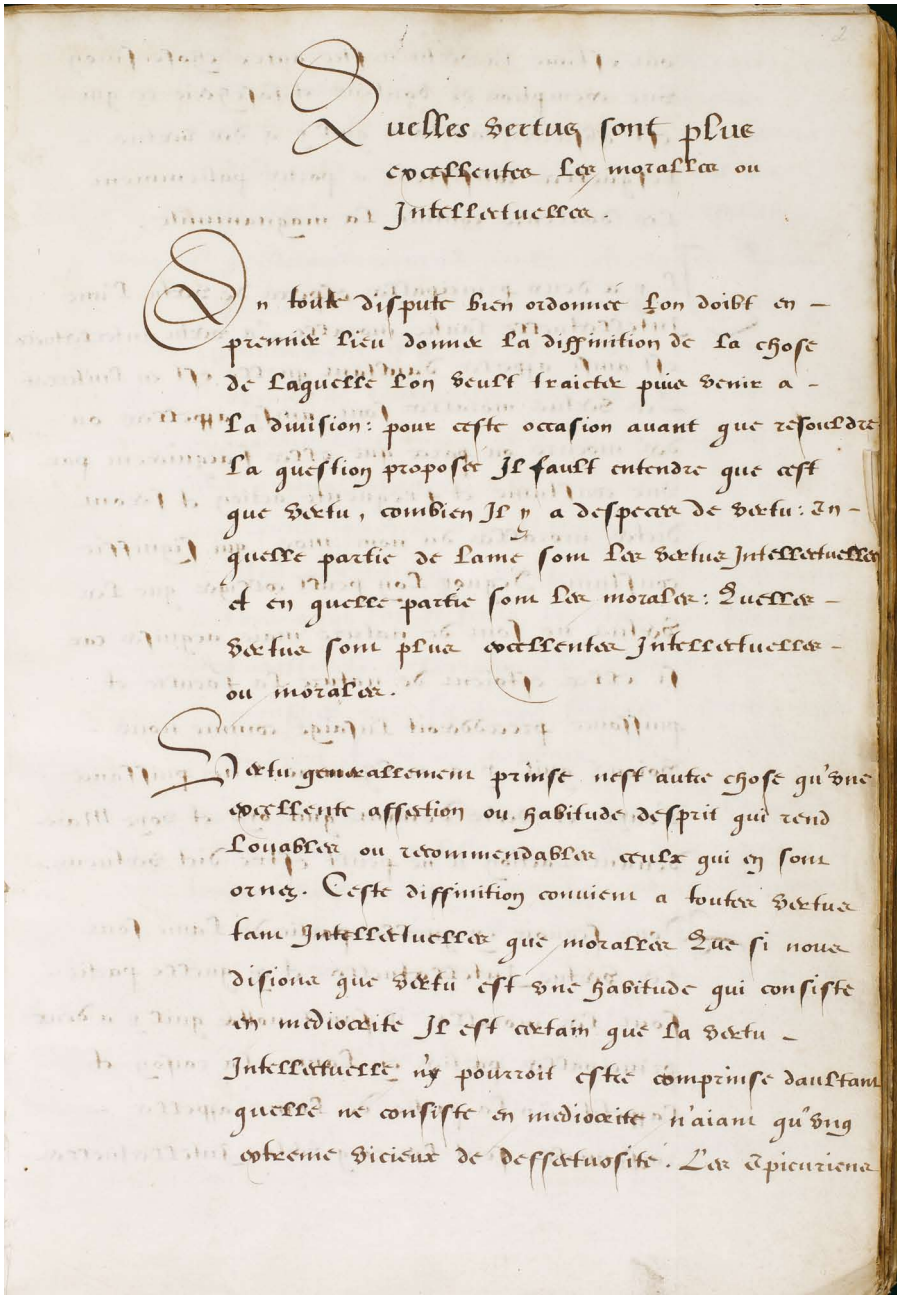 2
Quelles vertus sont plus
excellentes les moralles ou
Intellectuelles.
En toute dispute bien ordonnee l'on doibt en –
premier lieu donner la diffinition de la chose
de laquelle l'on veult traicter puis venir a –
la division: pour ceste occasion auant que resouldre
la question proposee Il fault entendre que cest
que vertu, combien Il y a despeces de vertu: En –
quelle partie de lame sont les vertus Intellectuelles
et en quelle partie sont les morales: Quelles –
vertus sont plus excellentes Intellectuelles –
ou morales.
Vertu generallement prinse nest autre chose qu'vne
excellente affection ou habitude desprit qui rend
louables ou recommendables ceulx qui en sont
ornez. Ceste diffinition conuient a toutes vertus
tant Intellectuelles que moralles Que si nous
disions que vertu est vne habitude qui consiste
en mediocrite Il est certain que la vertu –
Intellectuelle n'y pourroit estre comprinse daultant
quelle ne consiste en mediocrite n'aiant qu'vng
extreme vicieux de deffectuosite. Les Epicuriens